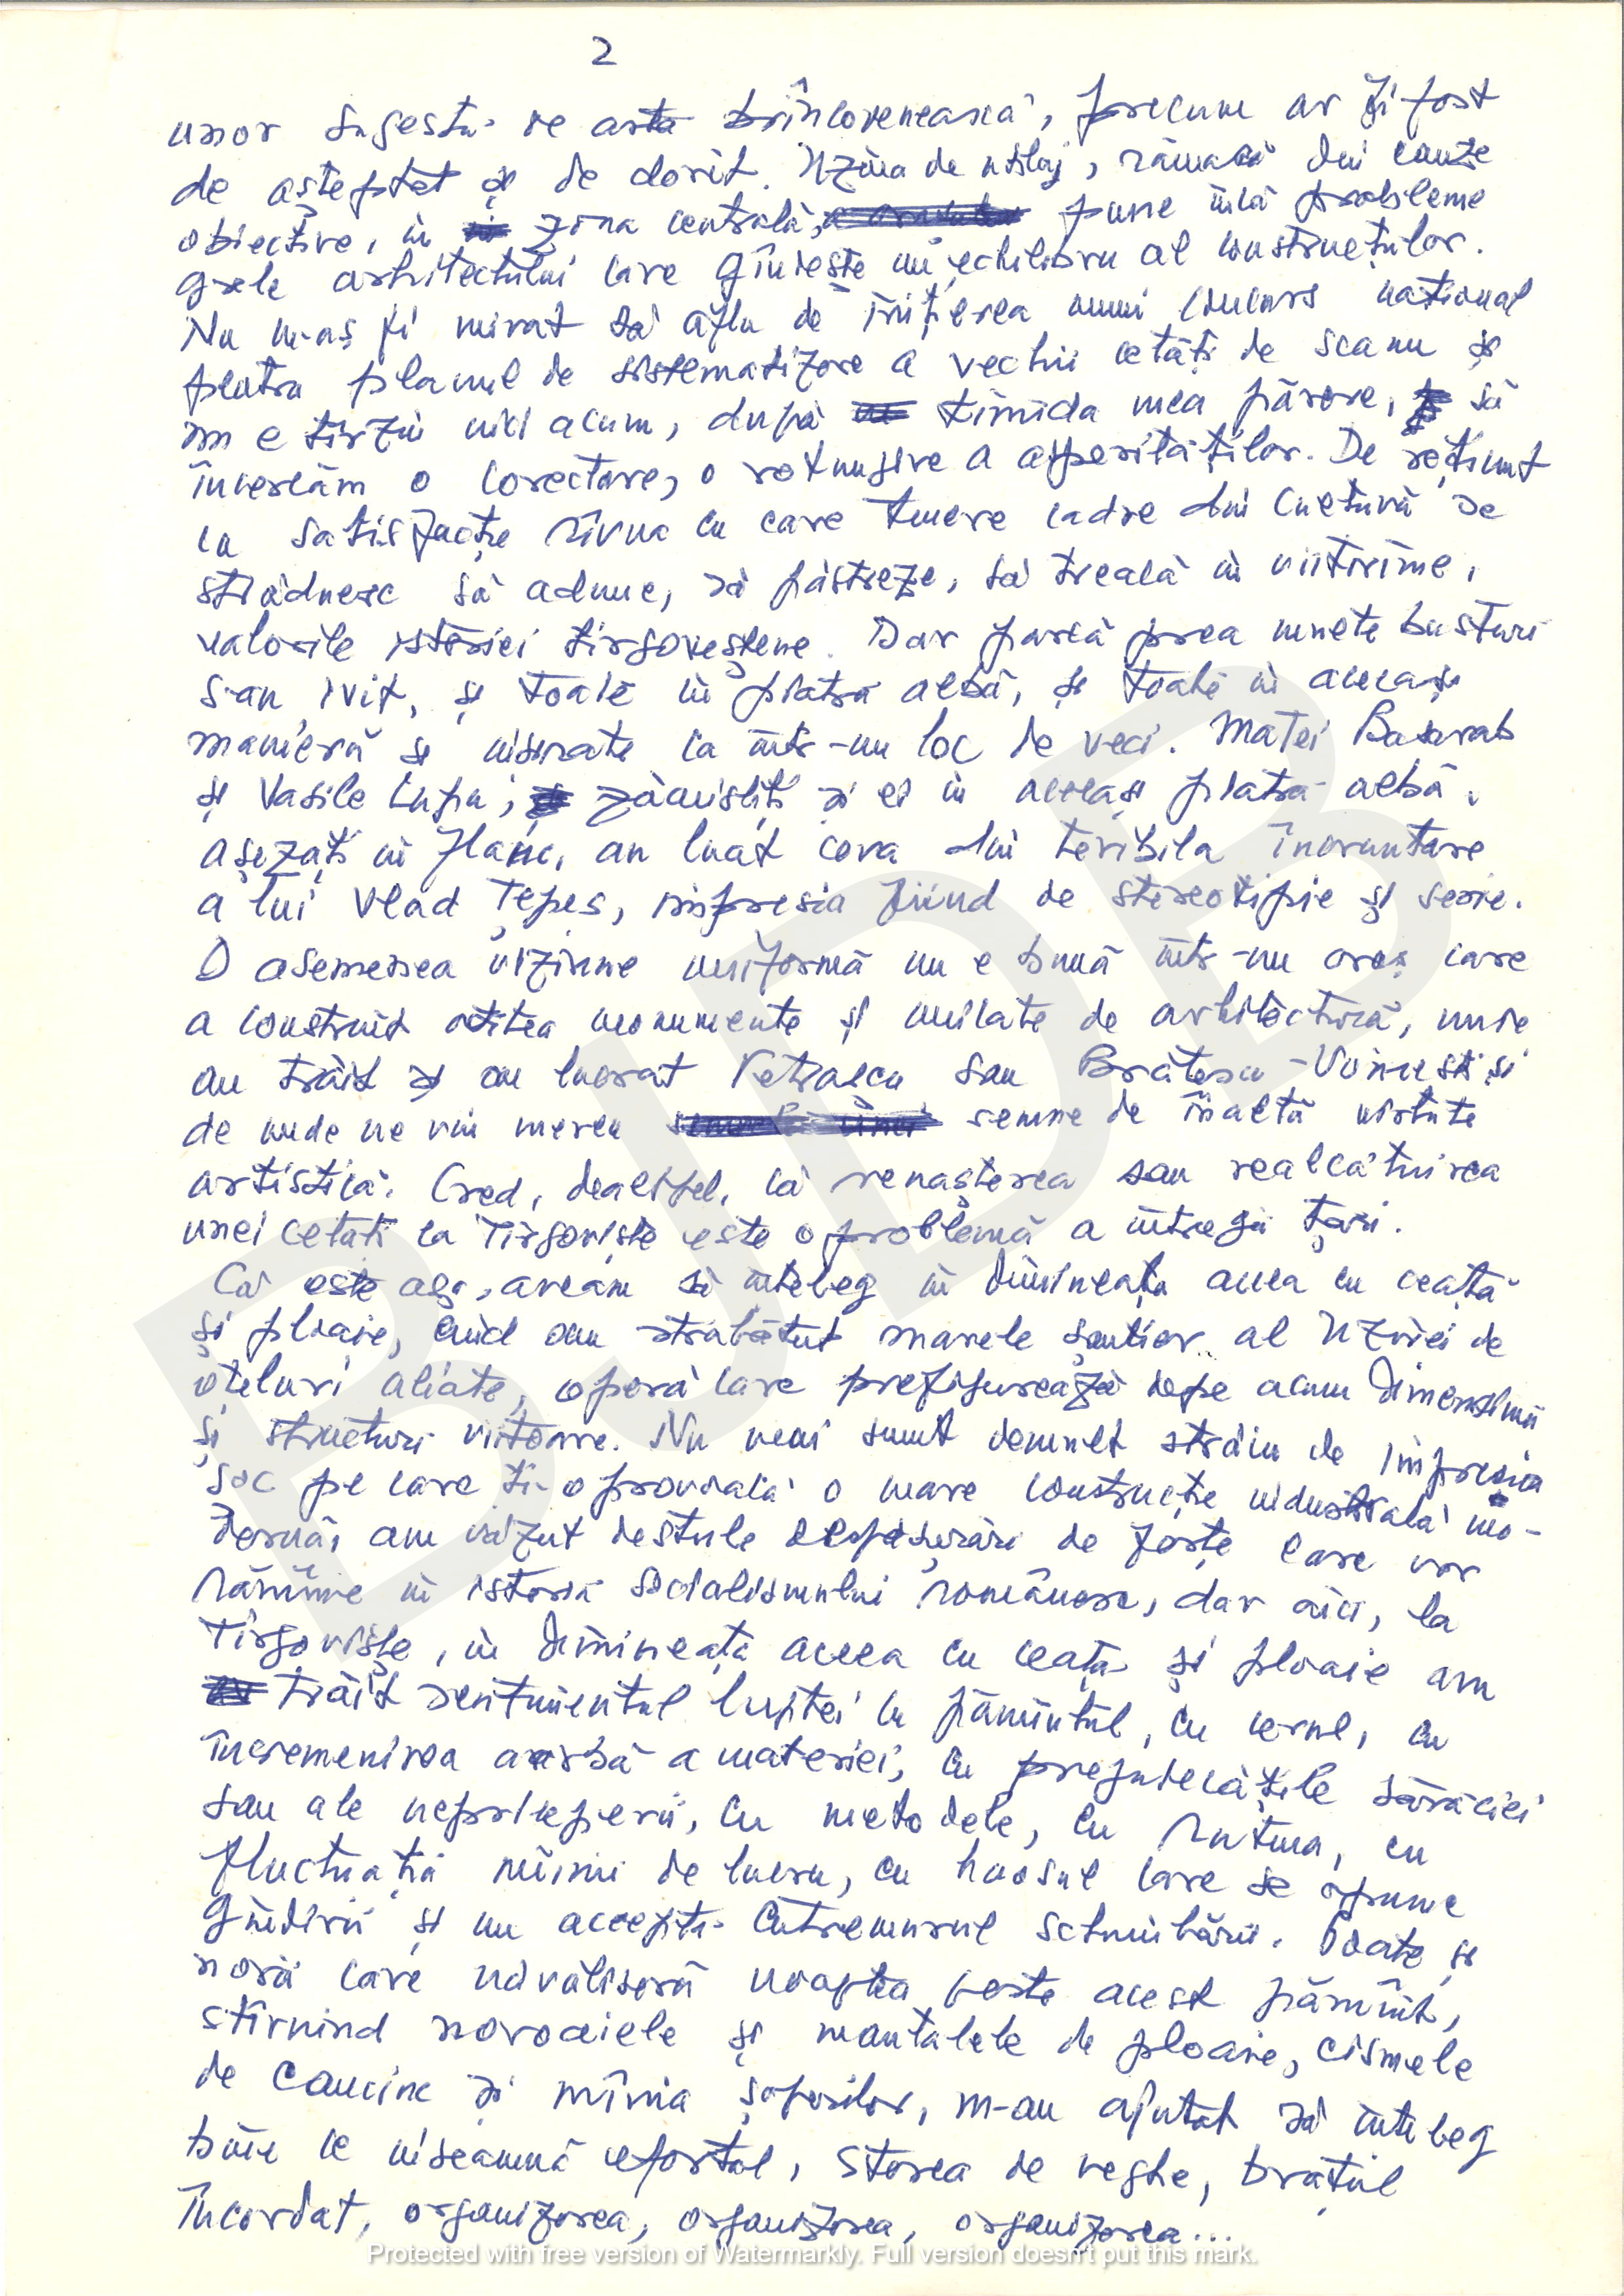 2
unor sugestii de artă brîncovenească, precum ar fi fost
de așteptat și de dorit. Uzina de utilaj, rămasă din cauze
obiective, în zona centrală, pune încă probleme
grele arhitectului care gîndește un echilibru al construcțiilor.
Nu m-aș fi mirat să aflu de inițierea unui concurs național
pentru planul de sistematizare a vechii cetăți de scaun și
nu e tîrziu nici acum, după timida mea părere, să
încercăm o corectare, o rotunjire a asperităților. De reținut
cu satisfacție rîvna cu care tinere cadre din cultură se
străduiesc să adune, să păstreze, să treacă în viitorime,
valorile istoriei tîrgoveștene. Dar parcă prea multe busturi
s-au ivit, și toate în piatră albă, și toate în aceeași
manieră și înșirate ca într-un loc de veci. Matei Basarab
și Vasile Lupu, zămisliți și ei în aceeași piatră albă,
așezați în flanc, au luat ceva din teribila încruntare
a lui Vlad Țepeș, impresia fiind de stereotipie și serie.
O asemenea viziune uniformă nu e bună într-un oraș care
a construit atîtea monumente și unicate de arhitectură, unde
au trăit și au lucrat Petrașcu sau Brătescu-Voinești și
de unde ne vin mereu semne de înaltă virtute
artistică. Cred, dealtfel, că renașterea sau realcătuirea
unei cetăți ca Tîrgoviște este o problemă a întregii țări.
Că este așa, aveam să înțeleg în dimineața aceea cu ceață
și ploaie, cînd am străbătut marele șantier al Uzinei de
oțeluri aliate, operă care prefigurează depe acum dimensiuni
și structuri viitoare. Nu mai sunt demult străin de impresia
șoc pe care ți-o provoacă o mare construcție industrială mo-
dernă, am văzut destule desfășurări de forțe care vor
rămîne în istoria socialismului românesc, dar aici, la
Tîrgoviște, în dimineața aceea cu ceață și ploaie am
trăit sentimentul luptei cu pămîntul, cu cerul, cu
încremenirea oarbă a materiei, cu prejudecățile sărăciei
sau ale nepriceperii, cu metodele, cu rutina, cu
fluctuația mîinii de lucru, cu haosul care se opune
gîndirii și nu acceptă cutremurul schimbării. Poate și
norii care năvăliseră noaptea peste acest pămînt,
stîrnind noroaiele și mantalele de ploaie, cismele
de cauciuc și mînia șoferilor, m-au ajutat să înțeleg
bine ce înseamnă efortul, starea de veghe, brațul
încordat, organizarea, organizarea, organizarea...
Protected with free version of Watermarkly. Full version doesn't put this mark.
BJDB